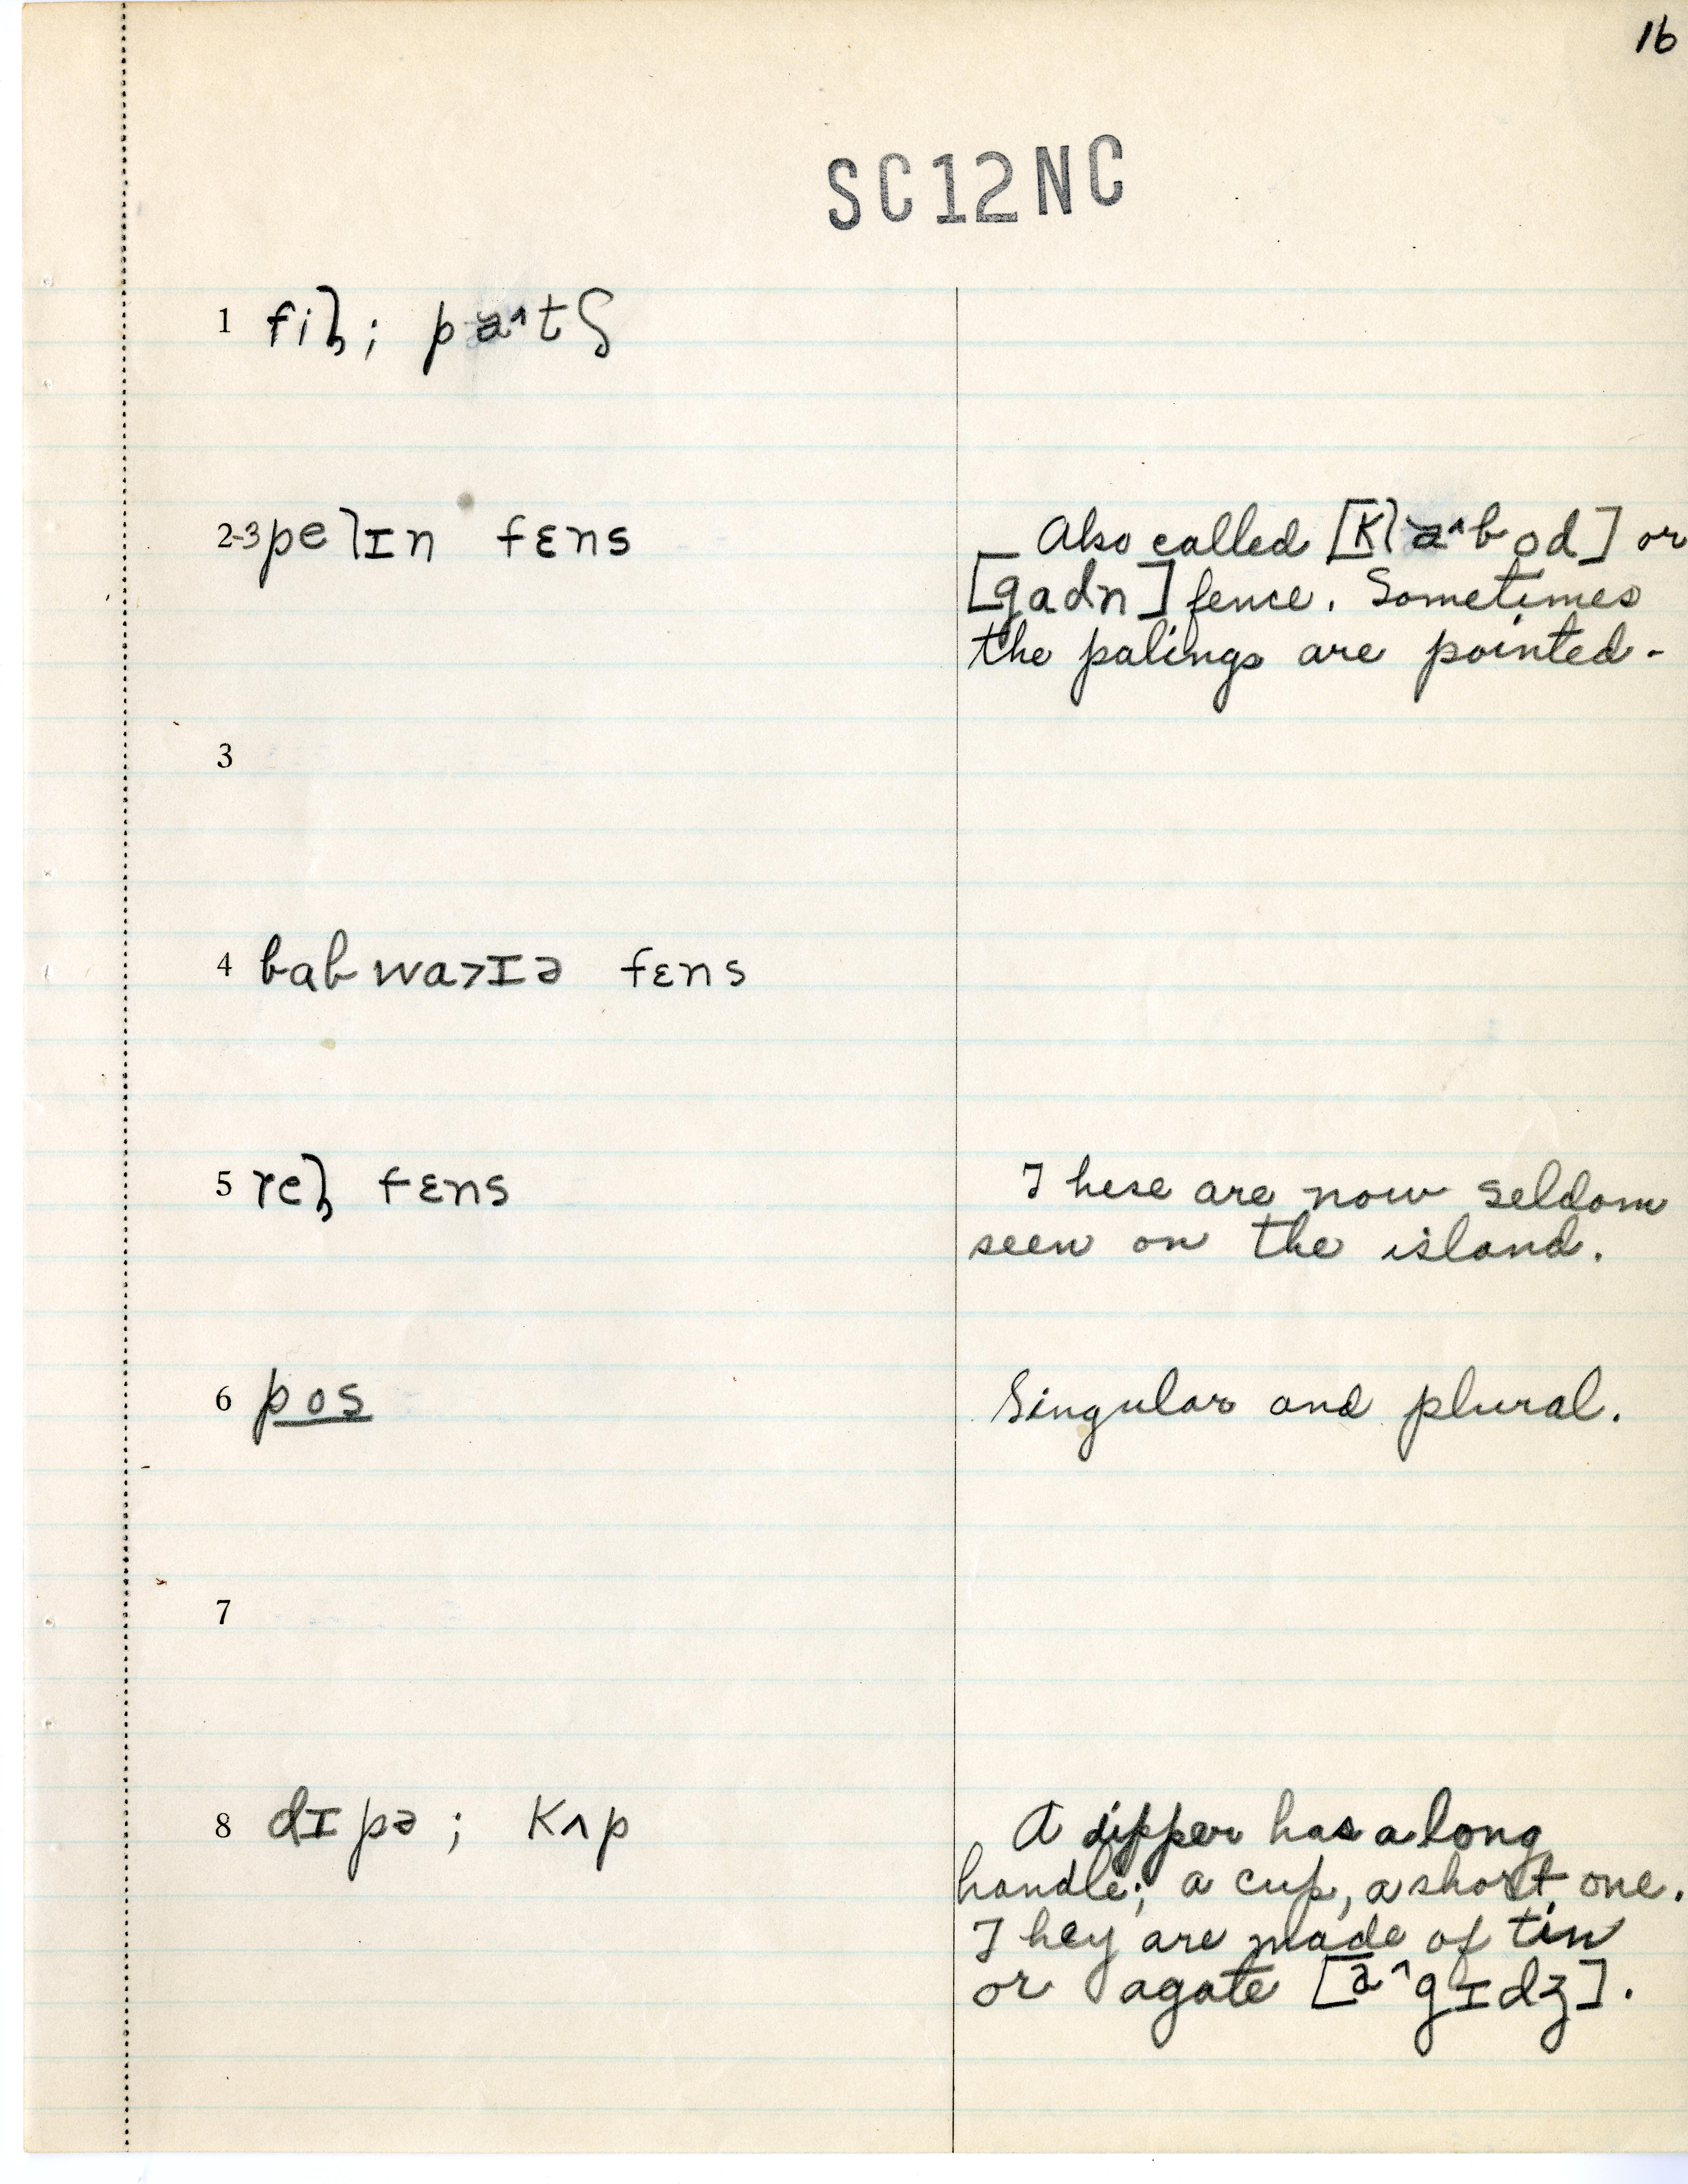 16
SC12NC
1 fiɫ; pa˄tʃ
2-3 pelɪn fɛns
Also called [kla˄bod] or
[gadn] fence. Sometimes
the palings are pointed.
3
4 babwa>ɪə fɛns
5 reɫ fɛns
These are now seldom
seen on the island.
6 pos
Singular and plural.
7
8 dɪpə; kʌp
A dipper has a long
handle; a cup, a short one.
They are made of tin
or agate [a˄gɪdʒ].